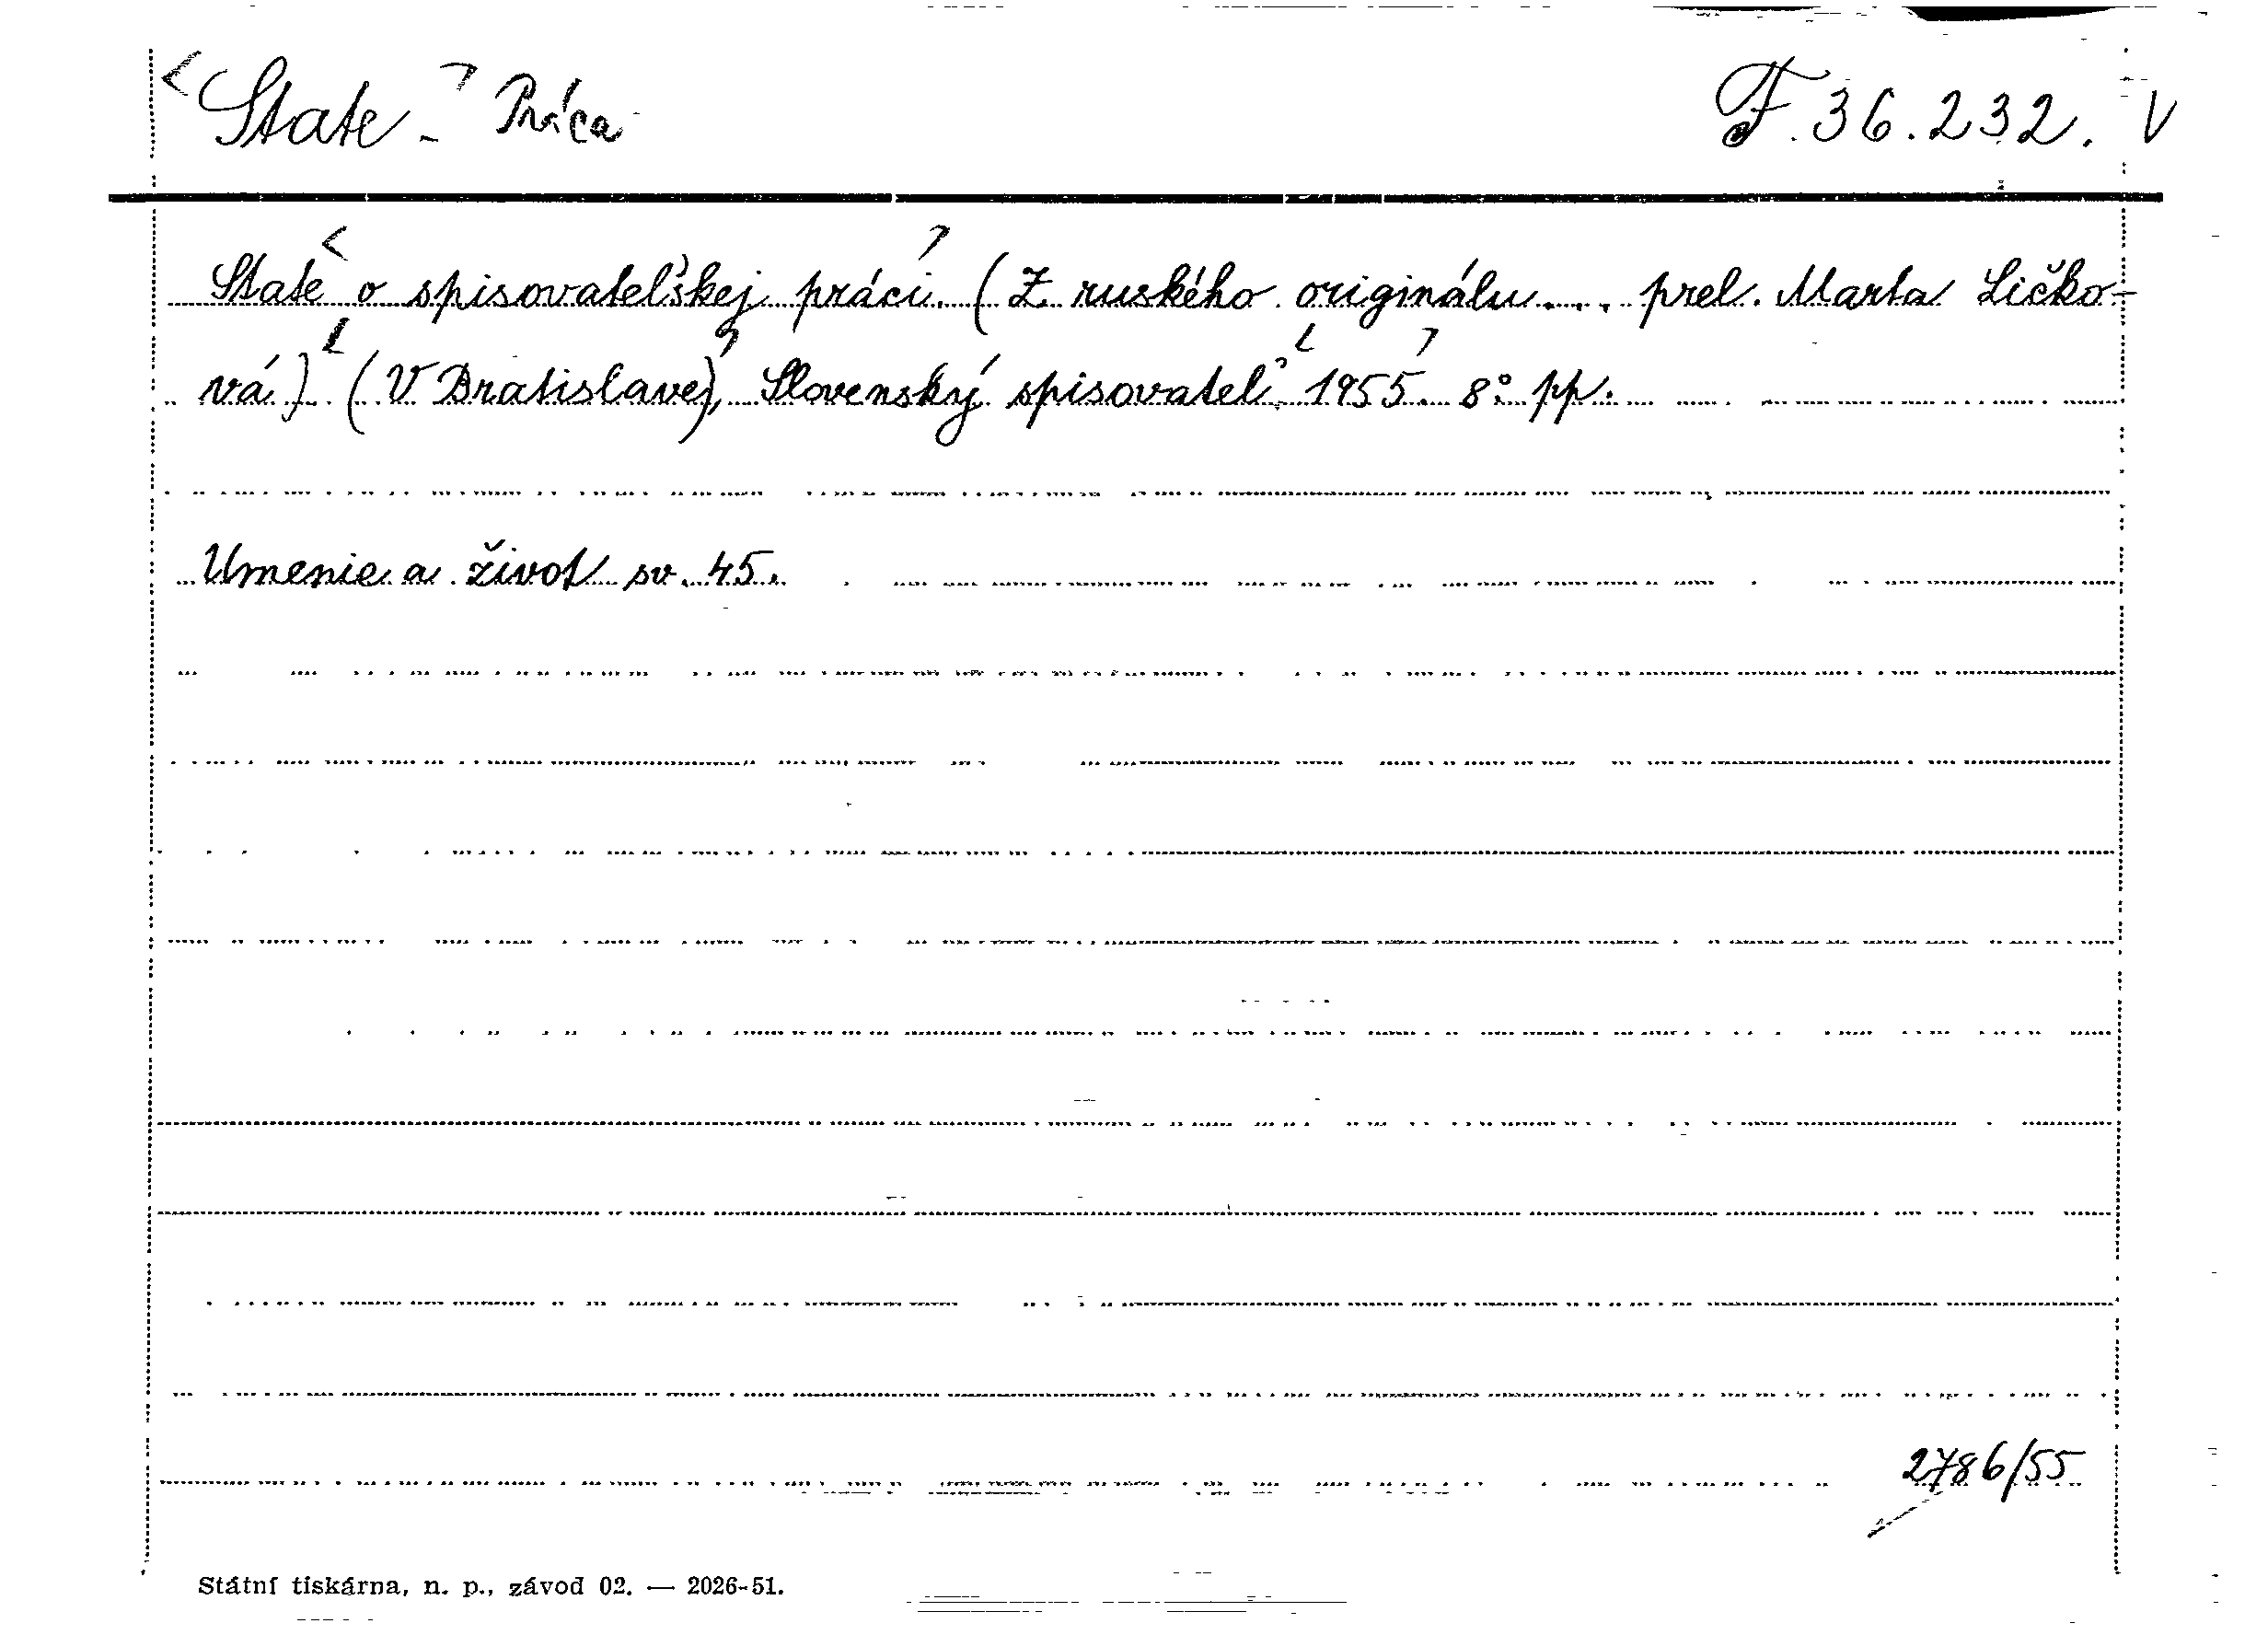 <State - > Práca F. 36.232. V
State < o spisovateľskej práci. > (Z ruského originálu... prel. Marta Ličko-
vá) < (V Bratislave), > Slovenský spisovateľ < 1955. > 8° pp.
Umenie a život sv. 45.
2786/55
Státní tiskárna, n. p., závod 02. — 2026-51.